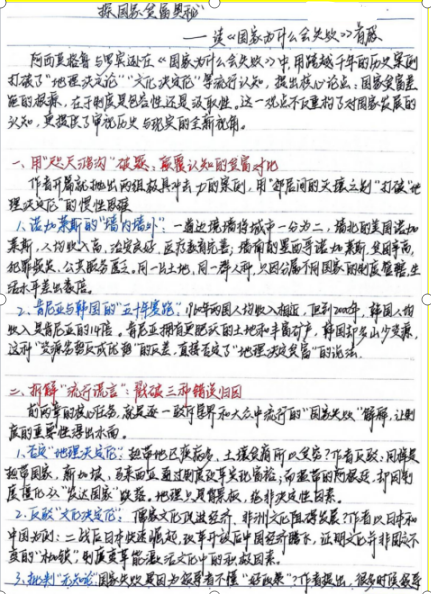 探国家贫富奥秘”
——读《国家为什么会失败》有感
阿西莫格鲁与罗宾逊在《国家为什么会失败》中,用跨越千年的历史案例
打破了“地理决定论”“文化决定论”等流行认知,提出核心论点:国家贫富差
距的根源,在于制度是包容性还是汲取性。这一观点不仅重构了对国家发展的
认知,更提供了审视历史与现实的全新视角。
一、用“天渊”破题:颠覆认知的贫富对比
作者开篇就抛出两组极具冲击力的案例,用“邻居间的天壤之别”打破“地
理决定论”的惯性思维
1、诺加莱斯的“墙内墙外”:一道边境墙将城市一分为二,墙北的美国诺加
莱斯,人均收入高,治安良好,医疗教育完善;墙南的墨西哥诺加莱斯,贫困
犯罪频发,公共服务匮乏。同一片土地,同一群人种,只因分属不同国家的制度管辖,生
活水平差出数倍。
2、肯尼亚与韩国的“五十年赛跑”:1960年两国人均收入相近,但到2000年,韩国人均
收入是肯尼亚的19倍。肯尼亚拥有更肥沃的土地和丰富矿产,韩国却多山少资源,
这种“资源优势反成劣势”的反差,直接否定了“地理决定贫富”的说法。
二、拆解“流行谎言”:戳破三种错误归因
前两章的核心任务,就是逐一驳斥学界和大众中流行的“国家失败”解释,让制
度的重要性浮出水面。
1、否定“地理决定论”:热带地区疾病多、土壤贫瘠所以贫穷?作者反驳:同样是
热带国家,新加坡、马来西亚通过制度改革实现富裕;而温带的阿根廷,却因制
度僵化从“发达国家”跌落。地理只是背景板,绝非决定性因素。
2、反驳“文化决定论”:儒家文化促进经济、非洲文化阻碍发展?作者以日本和
中国为例:二战后日本快速崛起,改革开放后中国经济腾飞,证明文化并非固定不
变的“枷锁”,制度变革能激活文化中的积极因素。
3、批判“无知论”:国家失败是因为领导者不懂“好政策”?作者提出,很多时候领导